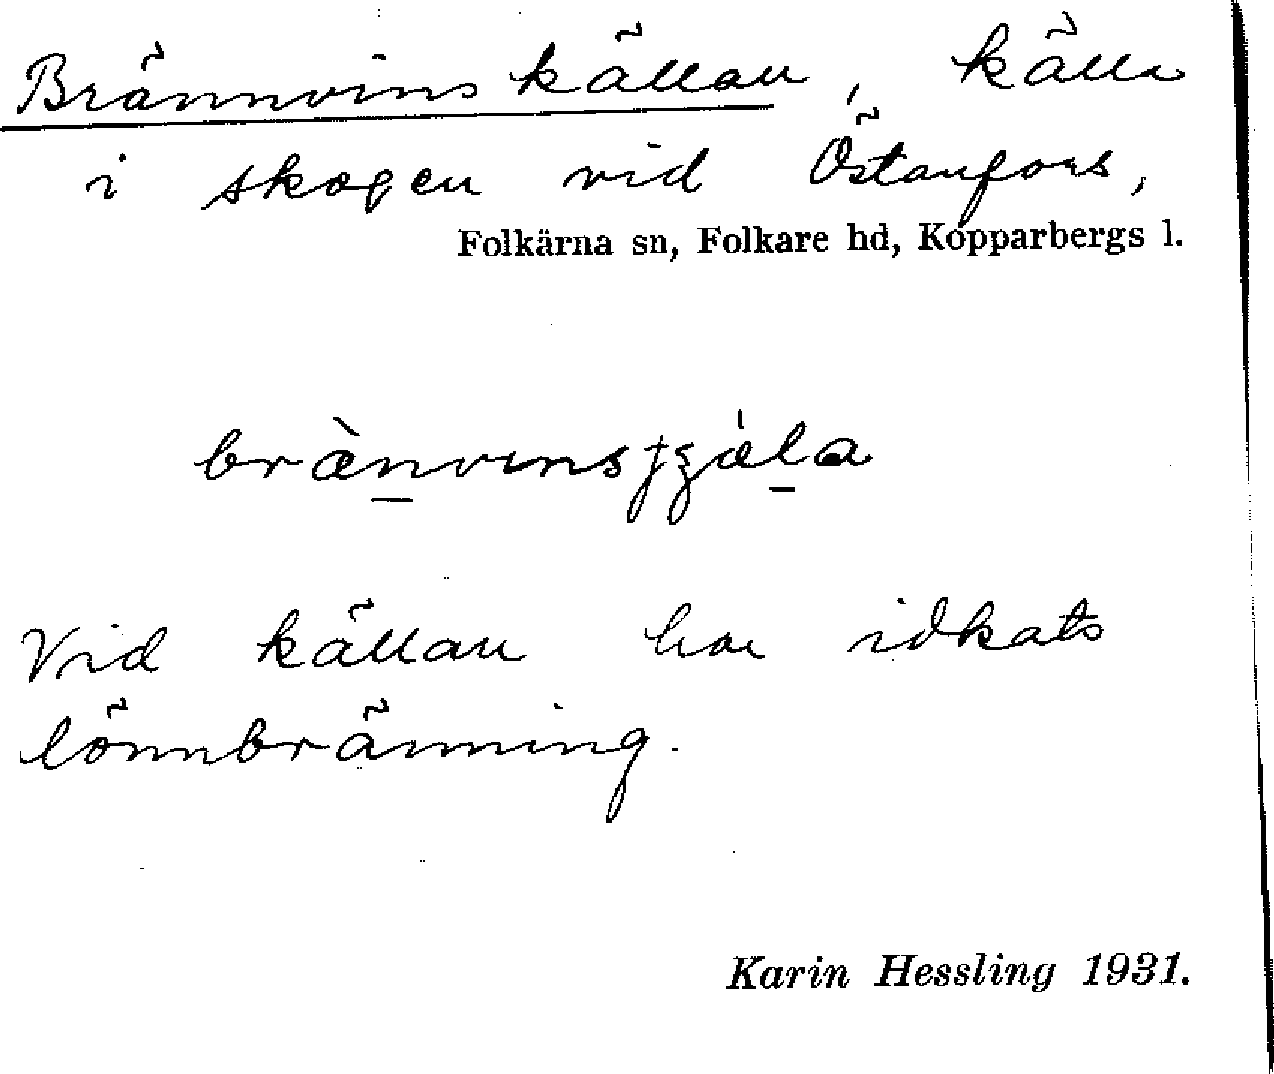 Brännvinskällan, källa
i skogen vid Östanfors,
Folkärna sn, Folkare hd, Kopparbergs l.
Vid källan har idkats
lönnbränning.
Karin Hessling 1931.